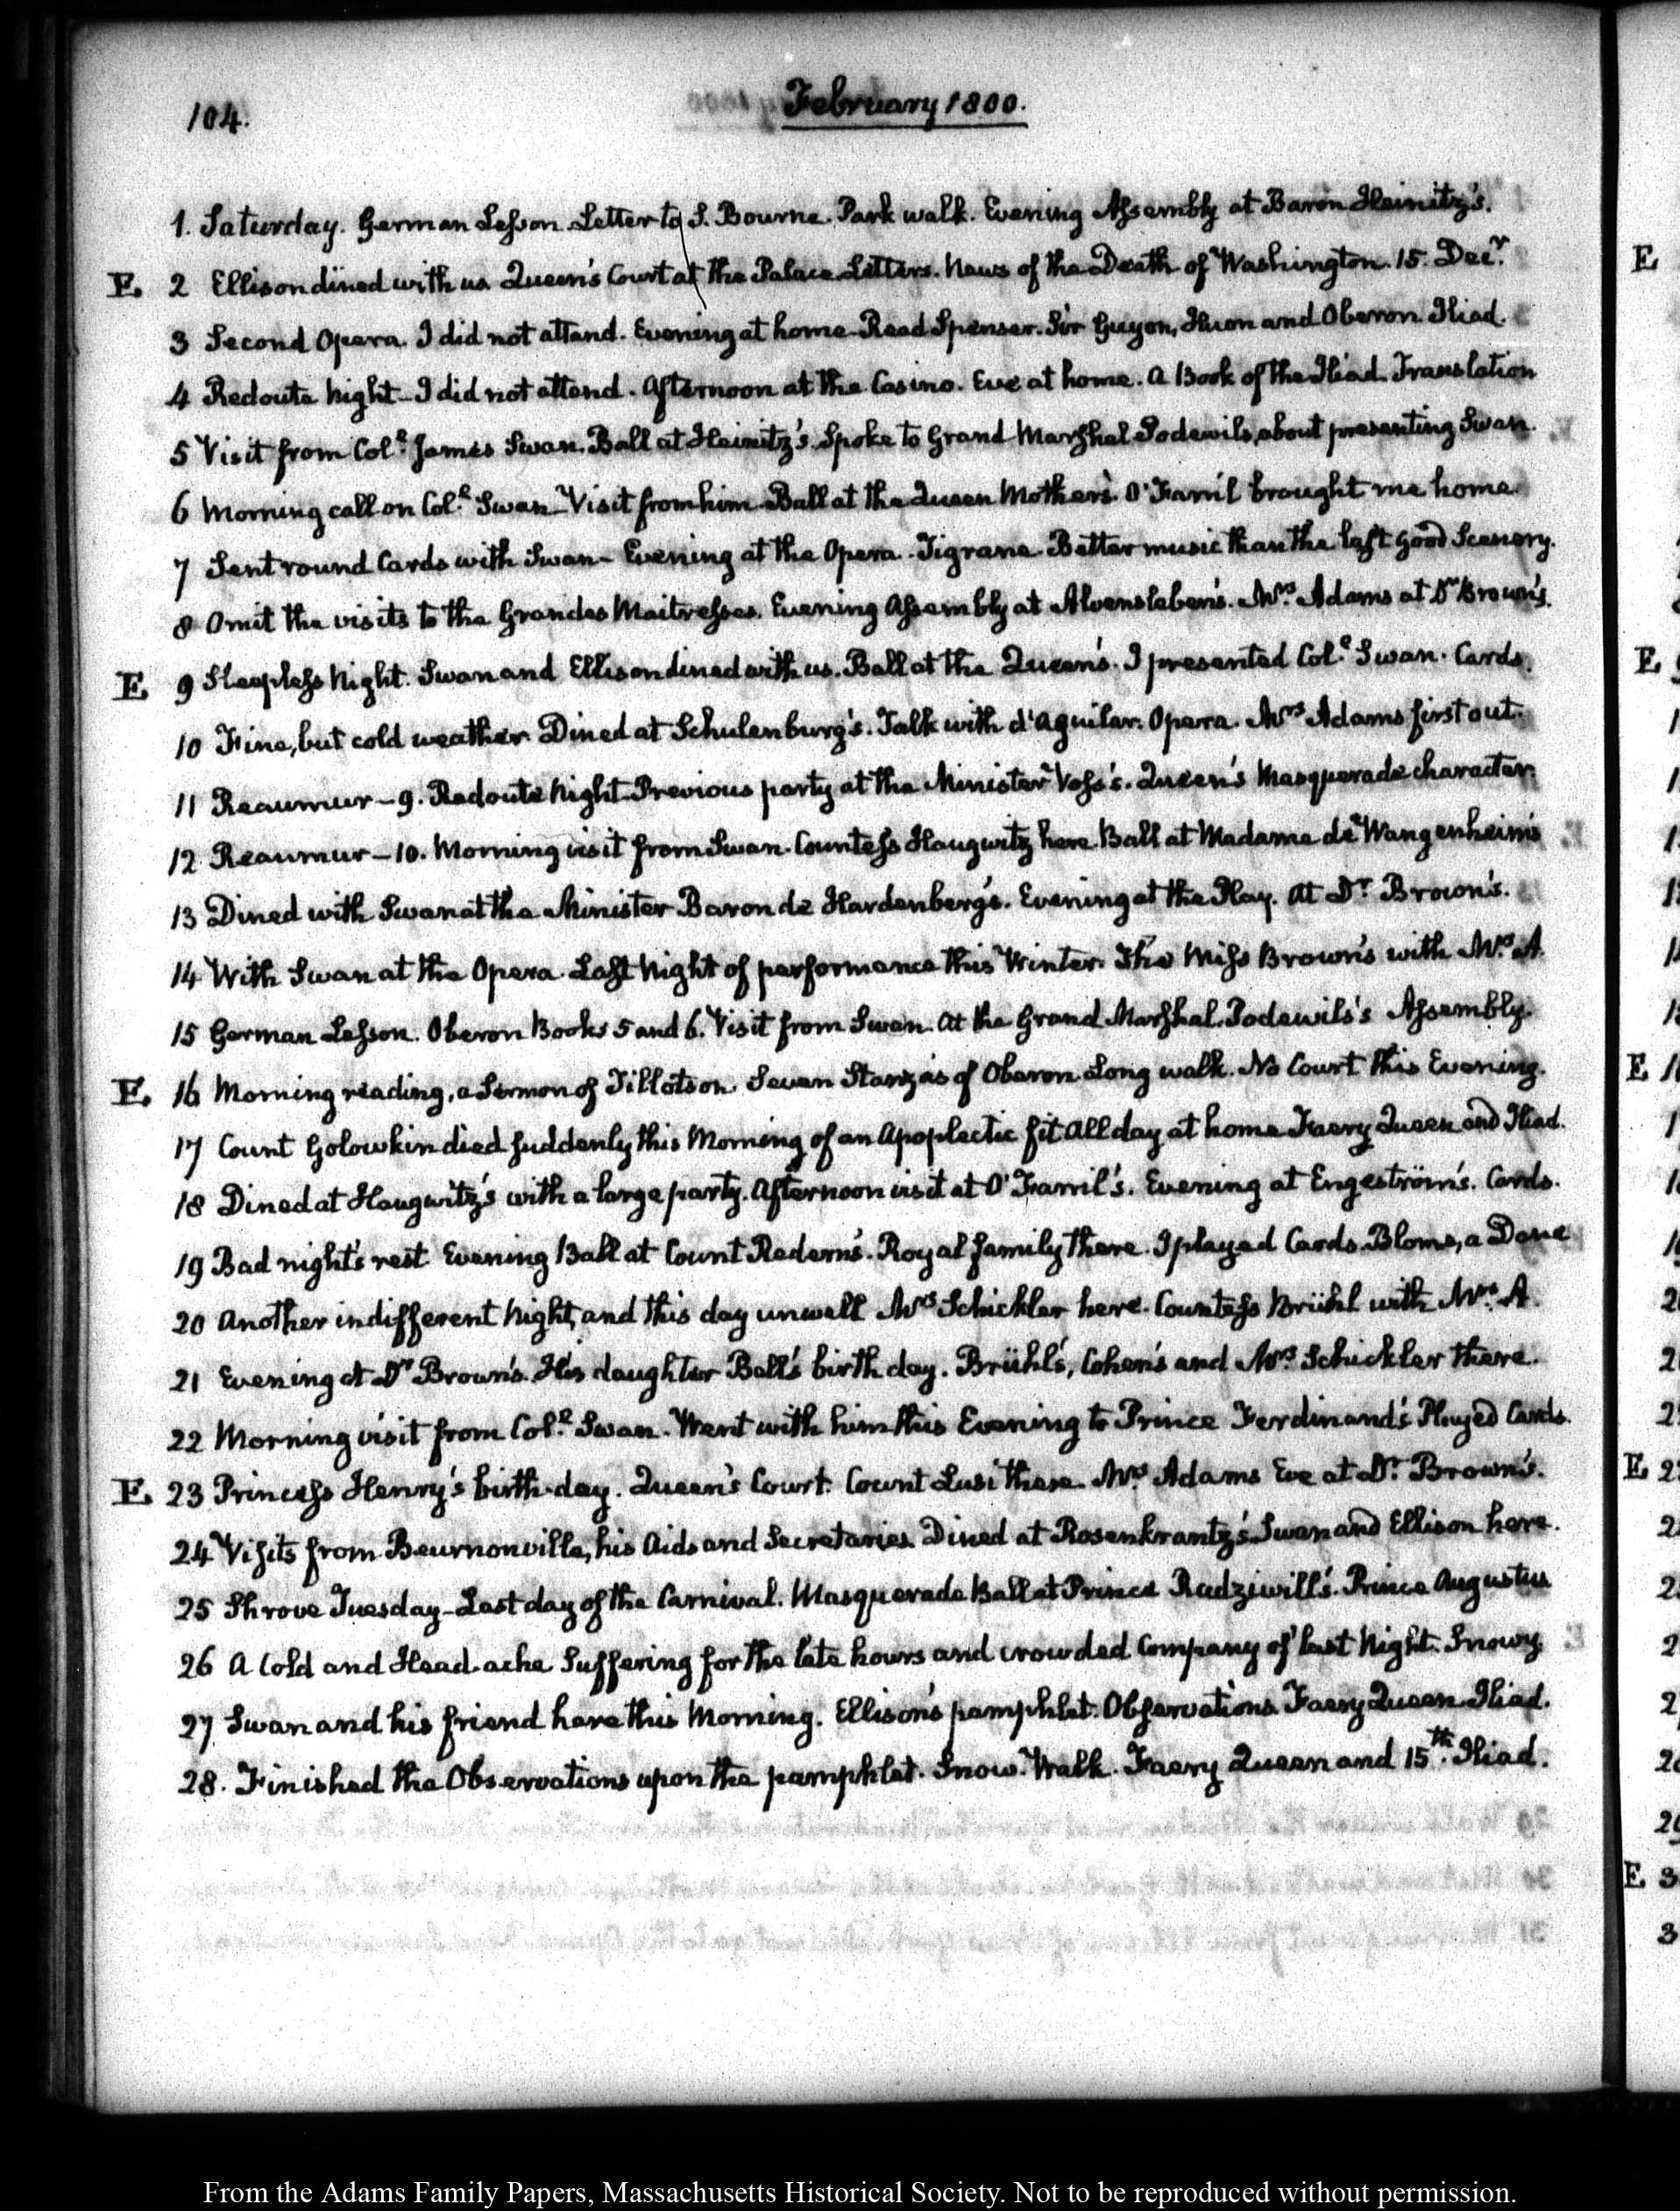 104.
February 1800.
1. Saturday. German Lesson Letter to S. Bourne. Park walk. Evening Assembly at Baron Heinitz's.
E. 2 Ellison dined with us. Queen's Court at the Palace Letters. News of the Death of Washington. 15. Decr.
3 Second Opera. I did not attend. Evening at home Read Spenser. Sir Guyon, Huon and Oberon. Iliad.
4 Redoute Night—I did not attend. Afternoon at the Casino. Eve at home. A Book of the Iliad. Translation
5 Visit from Coll. James Swan. Ball at Heinitz's. Spoke to Grand Marshal Podewils, about presenting Swan.
6 Morning call on Coll. Swan—Visit from him. Ball at the Queen Mother's. O'Farril brought me home.
7 Sent round Cards with Swan— Evening at the Opera. Tigrane. Better music than the last good Scenery.
8 Omit the visits to the Grandes Maitresses. Evening Assembly at Alvensleben's. Mrs. Adams at Dr Brown's.
E. 9 Sleepless Night. Swan and Ellison dined with us. Ball at the Queen's. I presented Coll. Swan. Cards.
10 Fine, but cold weather. Dined at Schulenburg's. Talk with d'Aguilar. Opera. Mrs Adams first out.
11 Reaumur—9. Redoute Night Previous party at the Minister Voss's. Queen's Masquerade character.
12 Reaumur—10. Morning visit from Swan. Countess Haugwitz here. Ball at Madame de Wangenheim's
13 Dined with Swan at the Minister Baron de Hardenberg's. Evening at the Play. At Dr. Brown's.
14 With Swan at the Opera. Last Night of performance this Winter. The Miss Brown's with Mrs. A.
15 German Lesson. Oberon Books 5 and 6. Visit from Swan. At the Grand Marshal. Podewils's Assembly.
E. 16 Morning reading, a Sermon of Tillotson. Seven Stanzas of Oberon. Long walk. No Court this Evening.
17 Count Golowkin died suddenly this Morning of an Apoplectic fit All day at home Faery Queen and Iliad.
18 Dined at Haugwitz's with a large party. Afternoon visit at O'Farril's. Evening at Engeström's. Cards.
19 Bad night's rest Evening Ball at Count Redern's. Royal family there. I played Cards. Blome, a Dane
20 Another indifferent Night, and this day unwell Mrs Schickler here. Countess Brühl with Mrs. A.
21 Evening at Dr Brown's. His daughter Bell's birth day. Brühl's, Cohen's and Mrs. Schickler there.
22 Morning visit from Coll. Swan. Went with him this Evening to Prince Ferdinand's Played Cards.
E. 23 Princess Henry's birth-day. Queen's Court. Count Lusi there. Mrs. Adams Eve at Dr. Brown's.
24 Visits from Beurnonville, his Aids and Secretaries. Dined at Rosenkrantz's. Swan and Ellison here.
25 Shrove Tuesday—Last day of the Carnival. Masquerade Ball at Prince Radziwill's. Prince Augustus
26 A Cold and Head-ache Suffering for the late hours and crowded Company of last Night. Snowy.
27 Swan and his friend here this Morning. Ellison's pamphlet. Observations. Faery Queen. Iliad.
28. Finished the Observations upon the pamphlet. Snow. Walk. Faery Queen and 15th. Iliad.
From the Adams Family Papers, Massachusetts Historical Society. Not to be reproduced without permission.